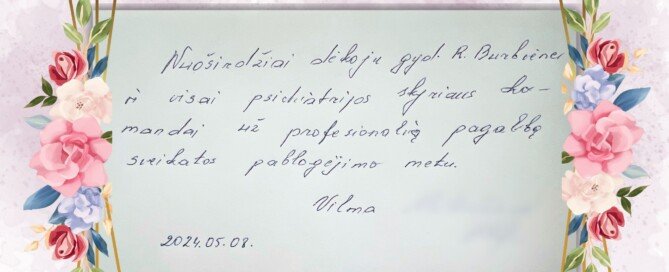 Nuoširdžiai dėkoju gyd. R. Burbienei
ir visai psichiatrijos skyriaus ko-
mandai už profesionalią pagalbą
sveikatos pablogėjimo metu.
Vilma
2024.05.08.